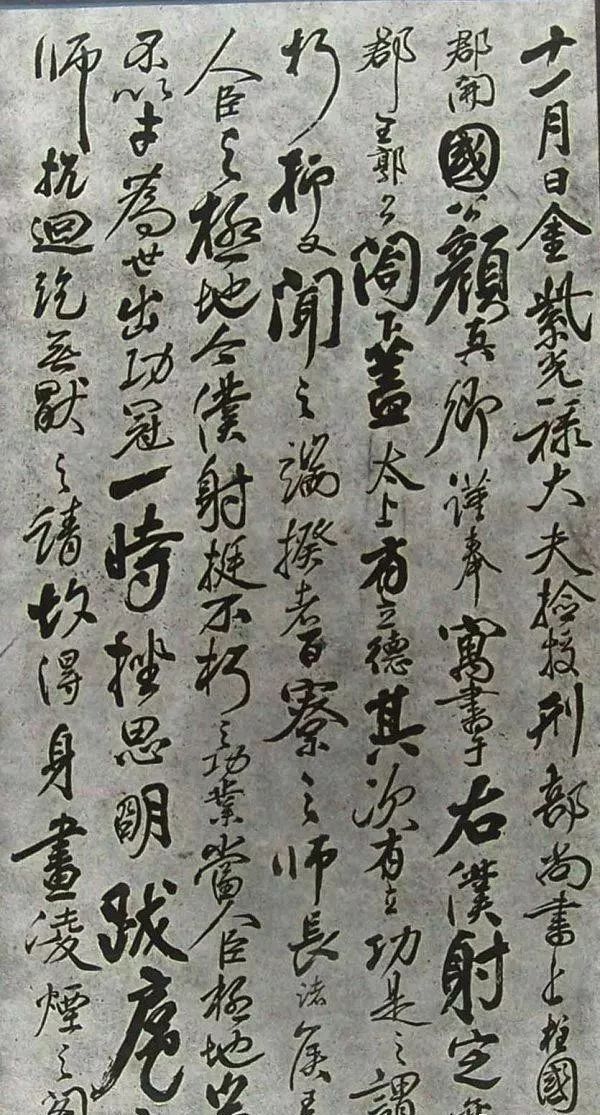 十一月日金紫光祿大夫檢校刑部尚書上柱國
郡開國公顏真卿謹奉寓書于右僕射定
郡王郭公閤下蓋太上有立德其次有立功是之謂
朽抑又聞之端揆者百寮之師長諸侯王
人臣之極地今僕射挺不朽之功業當人臣極地豈
不以才為世出功冠一時挫思明跋扈
師抗迴紇無猒之請故得身畫凌煙之閣